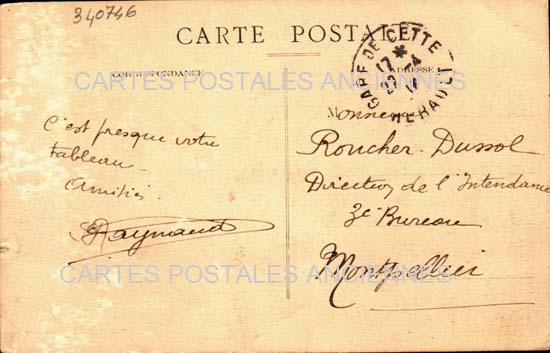 340746
CARTE POSTALE
CORRESPONDANCE
ADRESSE
GARE DE CETTE
HERAULT
17
CARTES POSTALES ANCIENNES
Monsieur
C'est presque votre
tableau
Amitiés
Raynaud
Roucher-Dussol
Direction de l'Intendance
3e Bureau
Montpellier
CARTES POSTALES ANCIENNES